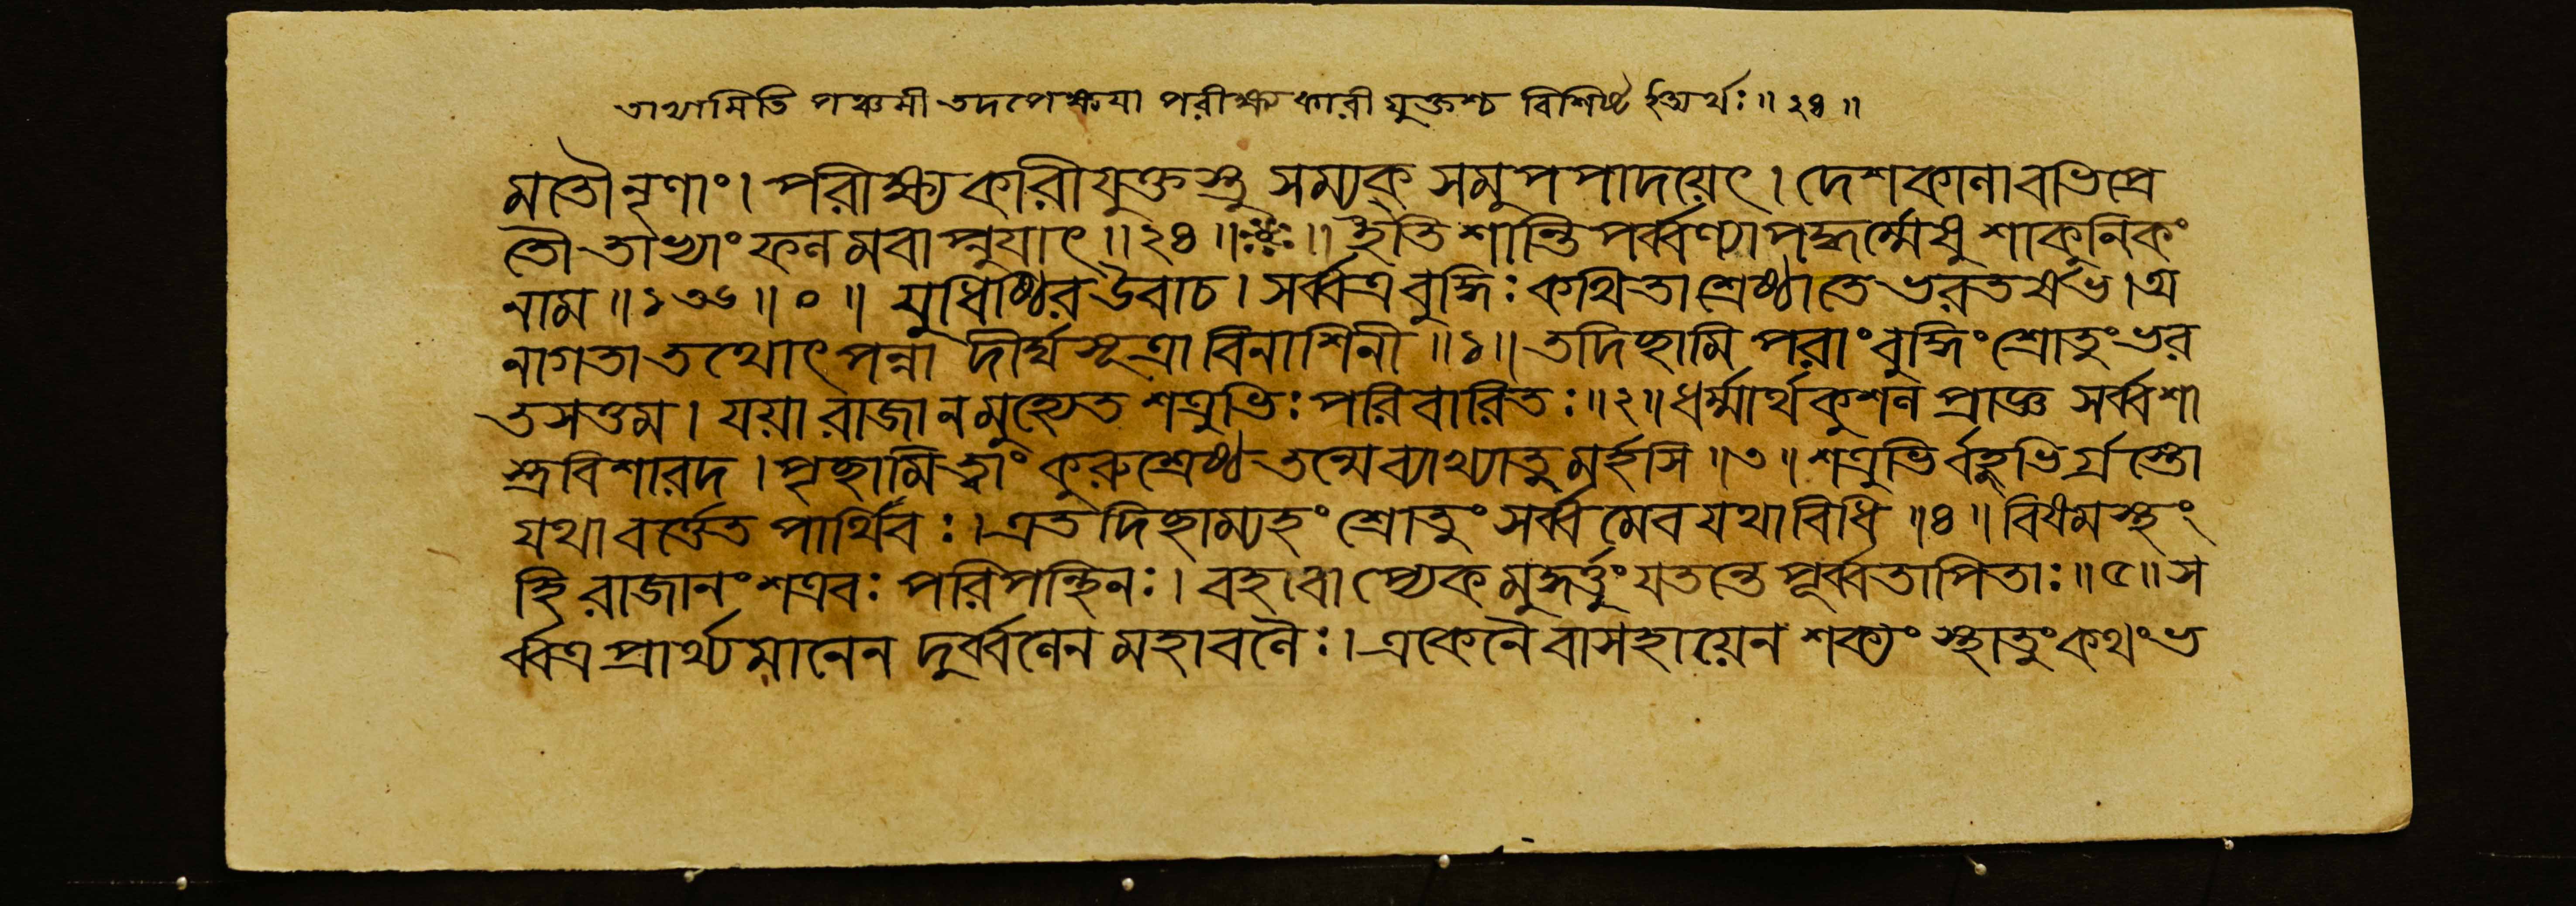 তাভ্যামিতি পঞ্চমী তদপেক্ষয়া পরীক্ষ্যকারী যুক্তশ্চ বিশিষ্ট ইত্যর্থঃ॥২৪॥
মতৌনৃণাং। পরীক্ষ্যকারীযুক্তস্তু সম্যক্ সমুপপাদয়েৎ। দেশকালাবভিপ্রে
তৌতাভ্যাং ফলমবাপ্নুয়াৎ॥২৪॥ঃ॥ইতিশান্তিপর্ব্বণ্যাপদ্ধর্ম্মেষু শাকুনিকং
নাম॥১৩৬॥০॥ যুধিষ্ঠির উবাচ। সর্ব্বত্র বুদ্ধিঃ কথিতাশ্রেষ্ঠাতে ভরতর্ষভ। অ
নাগতাতথোৎপন্না দীর্ঘসূত্রাবিনাশিনী॥১॥তদিচ্ছামি পরাংবুদ্ধিং শ্রোতুংভর
তসত্তম। যয়া রাজা ন মুহ্যেত শত্রুভিঃ পরিবারিতঃ॥২॥ধর্ম্মার্থকুশল প্রাজ্ঞ সর্ব্বশা
স্ত্রবিশারদ। পৃচ্ছামিত্বাং কুরুশ্রেষ্ঠ তন্মেব্যাখ্যাতুমর্হসি॥৩॥শত্রুভির্বহুভির্গ্রস্তো
যথা বর্ত্তেত পার্থিবঃ। এতদিচ্ছাম্যহং শ্রোতুং সর্ব্বমেব যথাবিধি॥৪॥বিষমস্থং
হি রাজানং শত্রবঃ পরিপন্থিনঃ। বহাবাপ্যেকমুদ্ধর্ত্তুং যতন্তে পূর্ব্বতাপিতাঃ॥৫॥স
র্ব্বত্র প্রার্থ্যমানেন দুর্ব্বলেন মহাবলৈঃ। একেনৈবাসহায়েন শক্যং স্থাতুং কথং ভ